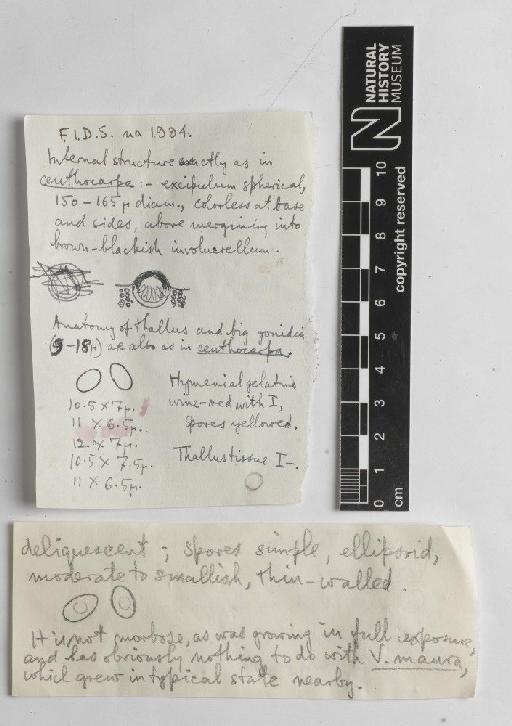 F.I.D.S. no 1994.
Internal structure exactly as in
ceuthocarpa :- excipulum spherical,
150-165 µ diam., colorless at base
and sides, above merging into
brown-blackish involucrellum.
Anatomy of thallus and big gonidia
(9-18µ) are also as in ceuthocarpa.
10.5 x 7µ.
11 x 6.5µ.
12 x 7µ.
10.5 x 7.5µ.
11 x 6.5µ.
Hymenial gelatine
wine-red with I,
spores yellowed.
Thallus tissue I-.
deliquescent ; spores simple, ellipsoid,
moderate to smallish, thin-walled.
It is not morbose, as was growing in full exposure,
and has obviously nothing to do with V. maura,
which grew in typical state nearby.
NATURAL
HISTORY
MUSEUM
copyright reserved
0 1 2 3 4 5 6 7 8 9 10
cm